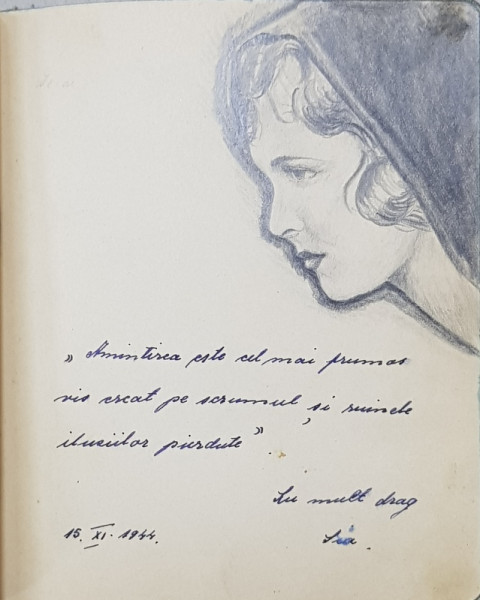 „Amintirea este cel mai frumos
vis creat pe scrumul și ruinele
iluziilor pierdute”.
Cu mult drag
15. XI. 1944.
Sia.